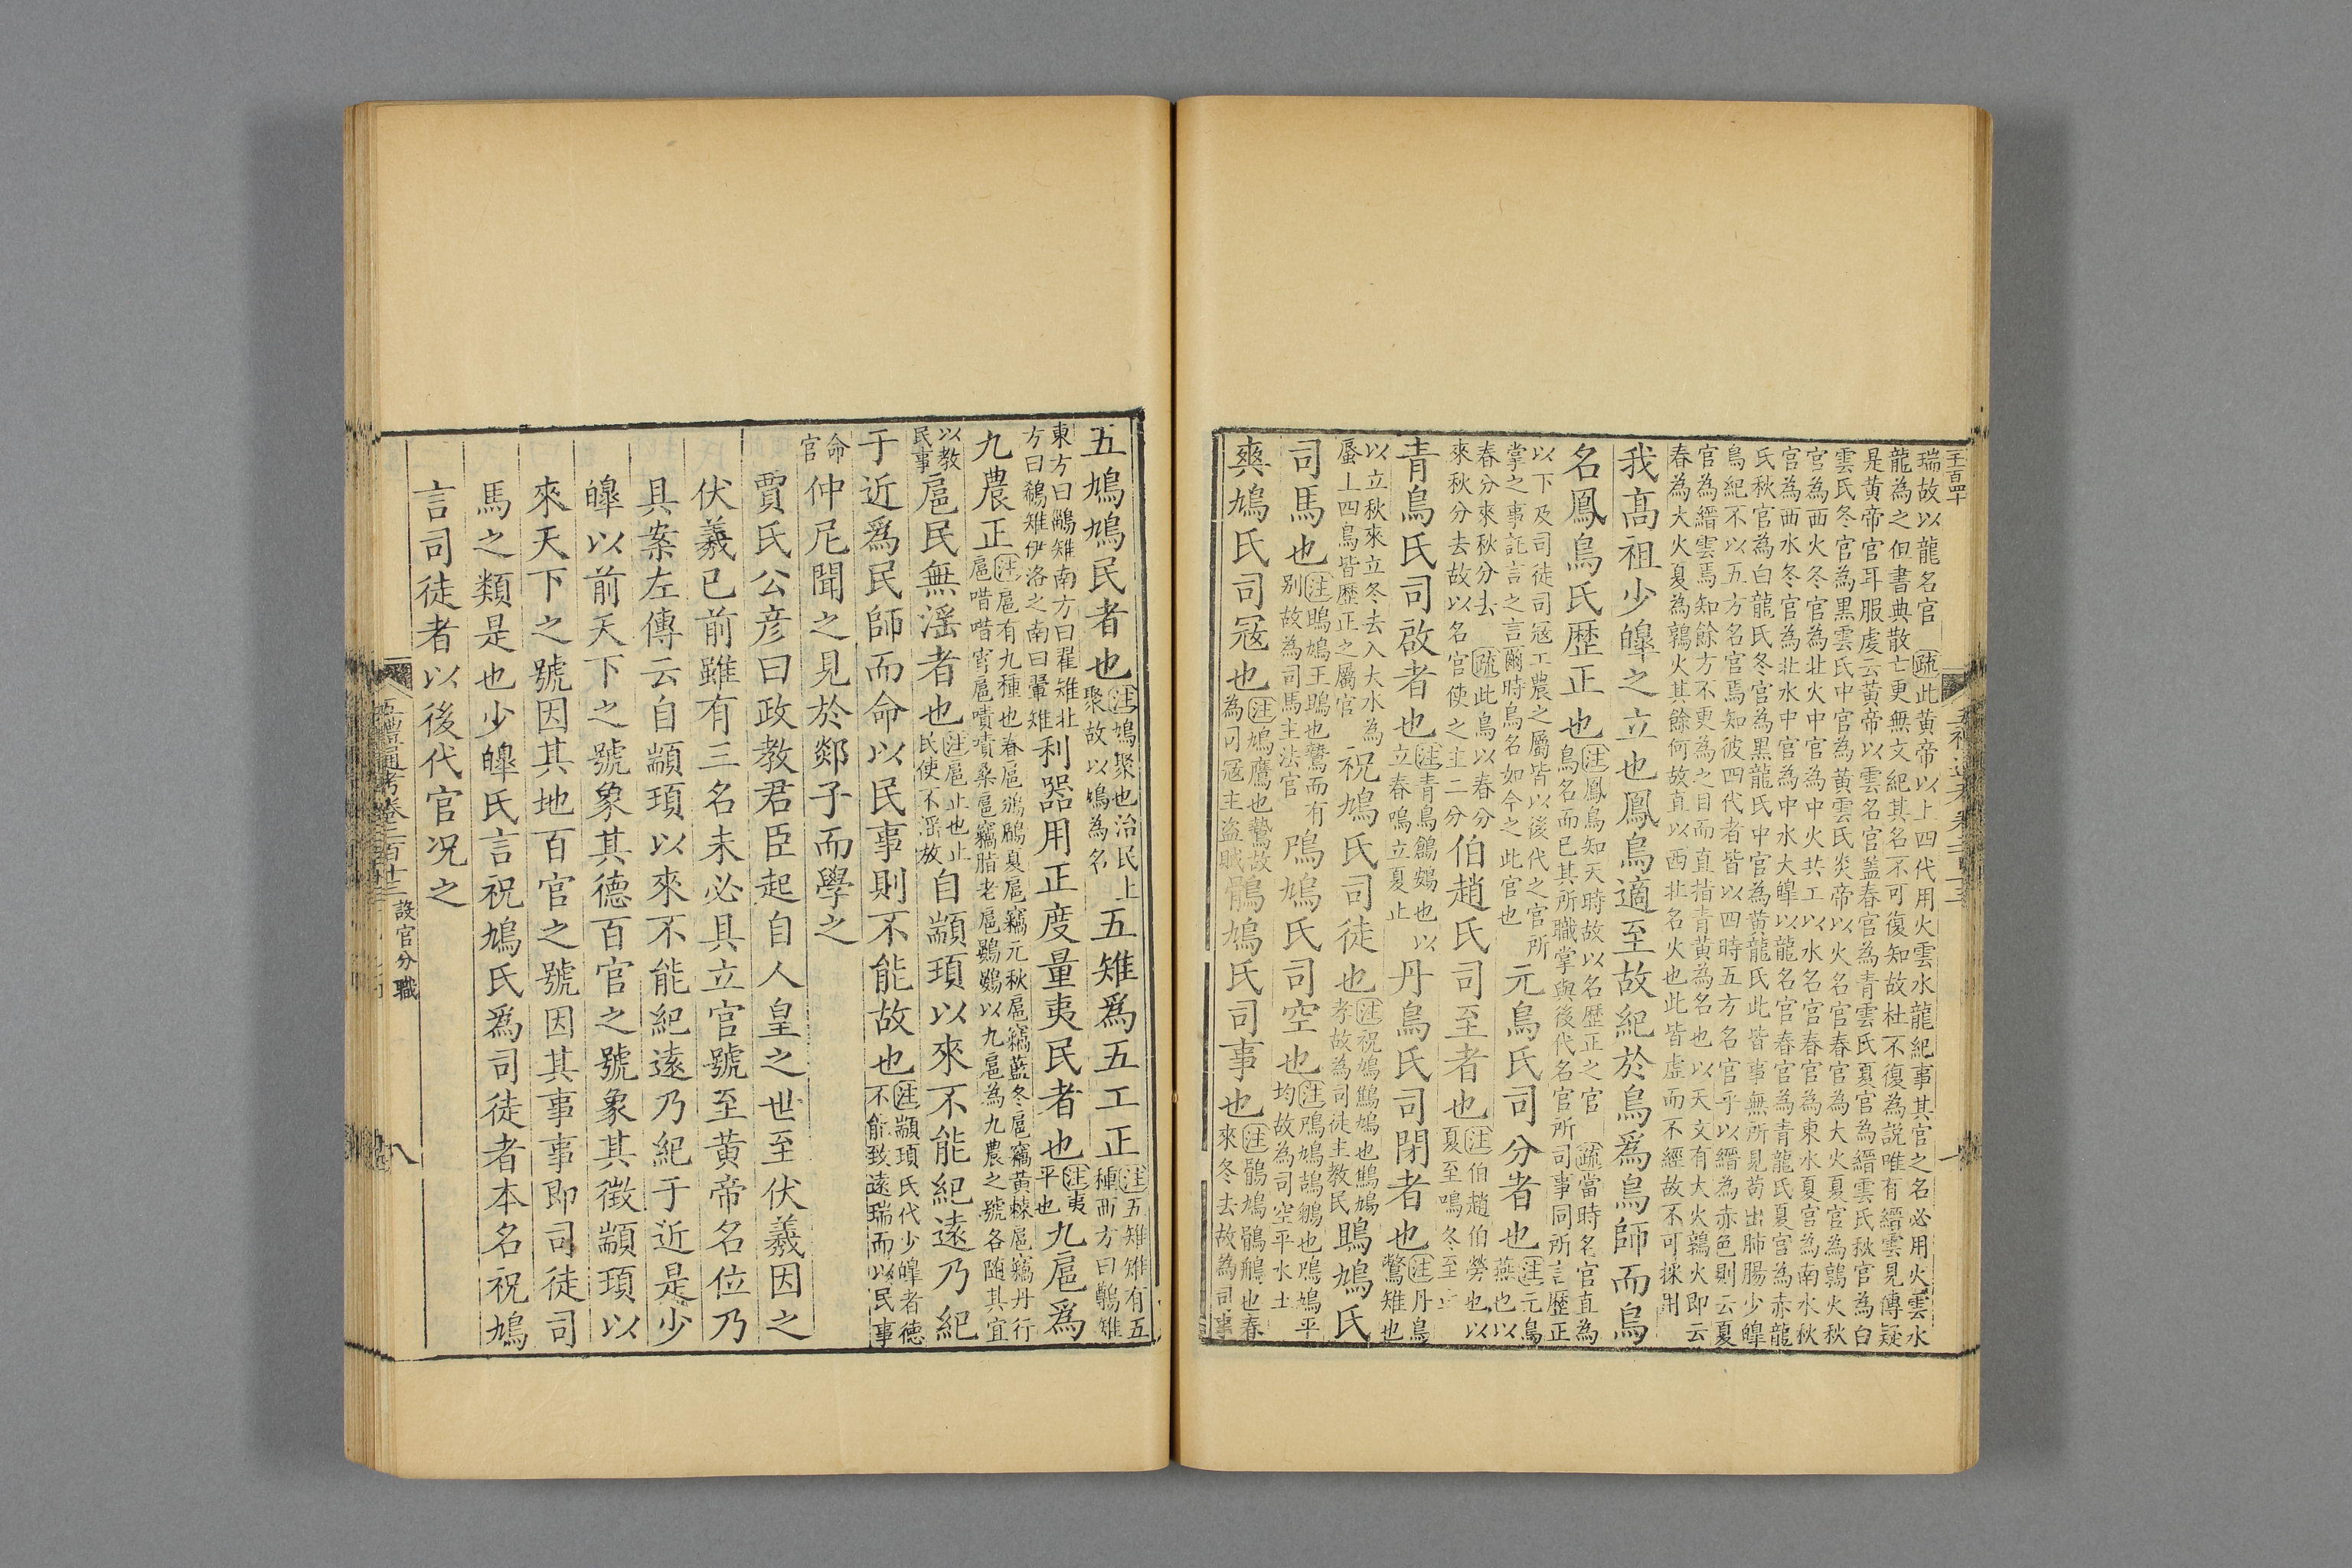 瑞故以龍名官 疏此黄帝以上四代用火雲水龍紀事其官之名必用火雲水
龍為之但書典散亡更無文紀其名不可復知故杜不復為説唯有縉雲見傳疑
是黄帝官耳服虔云黄帝以雲名官盖春官為青雲氏夏官為縉雲氏秋官為白
雲氏冬官為黒雲氏中官為黄雲氏炎帝以火名官春官為大火夏官為鶉火秋
官為西火冬官為北火中官為中火共工以水名官春官為東水夏官為南水秋
官為西水冬官為北水中官為中水大皥以龍名官春官為青龍氏夏官為赤龍
氏秋官為白龍氏冬官為黒龍氏中官為黄龍氏此皆事無所見苟出肺腸少皥
鳥紀不以五方名官焉知彼四代者皆以四時五方名官乎以縉為赤色則云夏
官為縉雲焉知餘方不更為之目而直指青黄為名也以天文有大火鶉火即云
春為大火夏為鶉火其餘何故直以西北名火也此皆虚而不經故不可採用
我髙祖少皥之立也鳳鳥適至故紀於鳥爲鳥師而鳥
名鳳鳥氏歴正也 注鳳鳥知天時故以名歴正之官 疏當時名官直為鳥名而已其所職掌與後代名官所司事同所言歴正
以下及司徒司冦工農之屬皆以後代之官所掌之事託言之言爾時鳥名如今之此官也 元鳥氏司分者也 注元鳥燕也以
春分來秋分去 疏此鳥以春分來秋分去故以名官使之主二分 伯趙氏司至者也 注伯趙伯勞也以夏至鳴冬至止
青鳥氏司啟者也 注青鳥鶬鴳也以立春鳴立夏止 丹鳥氏司閉者也 注丹鳥鷩雉也
以立秋來立冬去入大水為蜃上四鳥皆歴正之屬官 祝鳩氏司徒也 注祝鳩鷦鳩也鷦鳩孝故為司徒主教民 鴡鳩氏
司馬也 注鴡鳩王鴡也鷙而有别故為司馬主法官 鳲鳩氏司空也 注鳲鳩鴶鵴也鳲鳩平均故為司空平水土
爽鳩氏司冦也 注鳩鷹也鷙故為司冦主盗賊 鶻鳩氏司事也 注鶻鳩鶻鵃也春來冬去故為司事
五鳩鳩民者也 注鳩聚也治民上聚故以鳩為名 五雉爲五工正 注五雉雉有五種西方曰鷷雉
東方曰鶅雉南方曰翟雉北方曰鵗雉伊洛之南曰翬雉 利器用正度量夷民者也 注夷平也 九扈爲
九農正 注扈有九種也春扈鳻鶥夏扈竊元秋扈竊藍冬扈竊黃棘扈竊丹行扈唶唶宵扈嘖嘖桑扈竊脂老扈鷃鷃以九扈為九農之號各随其宜
以教民事 扈民無淫者也 注扈止也止民使不淫放 自顓頊以來不能紀遠乃紀
于近爲民師而命以民事則不能故也 注顓頊氏代少皥者德不能致遠瑞而以民事
命官 仲尼聞之見於郯子而學之
賈氏公彦曰政教君臣起自人皇之世至伏羲因之
伏羲已前雖有三名未必具立官號至黄帝名位乃
具案左傳云自顓頊以來不能紀遠乃紀于近是少
皥以前天下之號象其德百官之號象其徴顓頊以
來天下之號因其地百官之號因其事事即司徒司
馬之類是也少皥氏言祝鳩氏爲司徒者本名祝鳩
言司徒者以後代官况之
五禮通考卷二百十三 設官分職
八